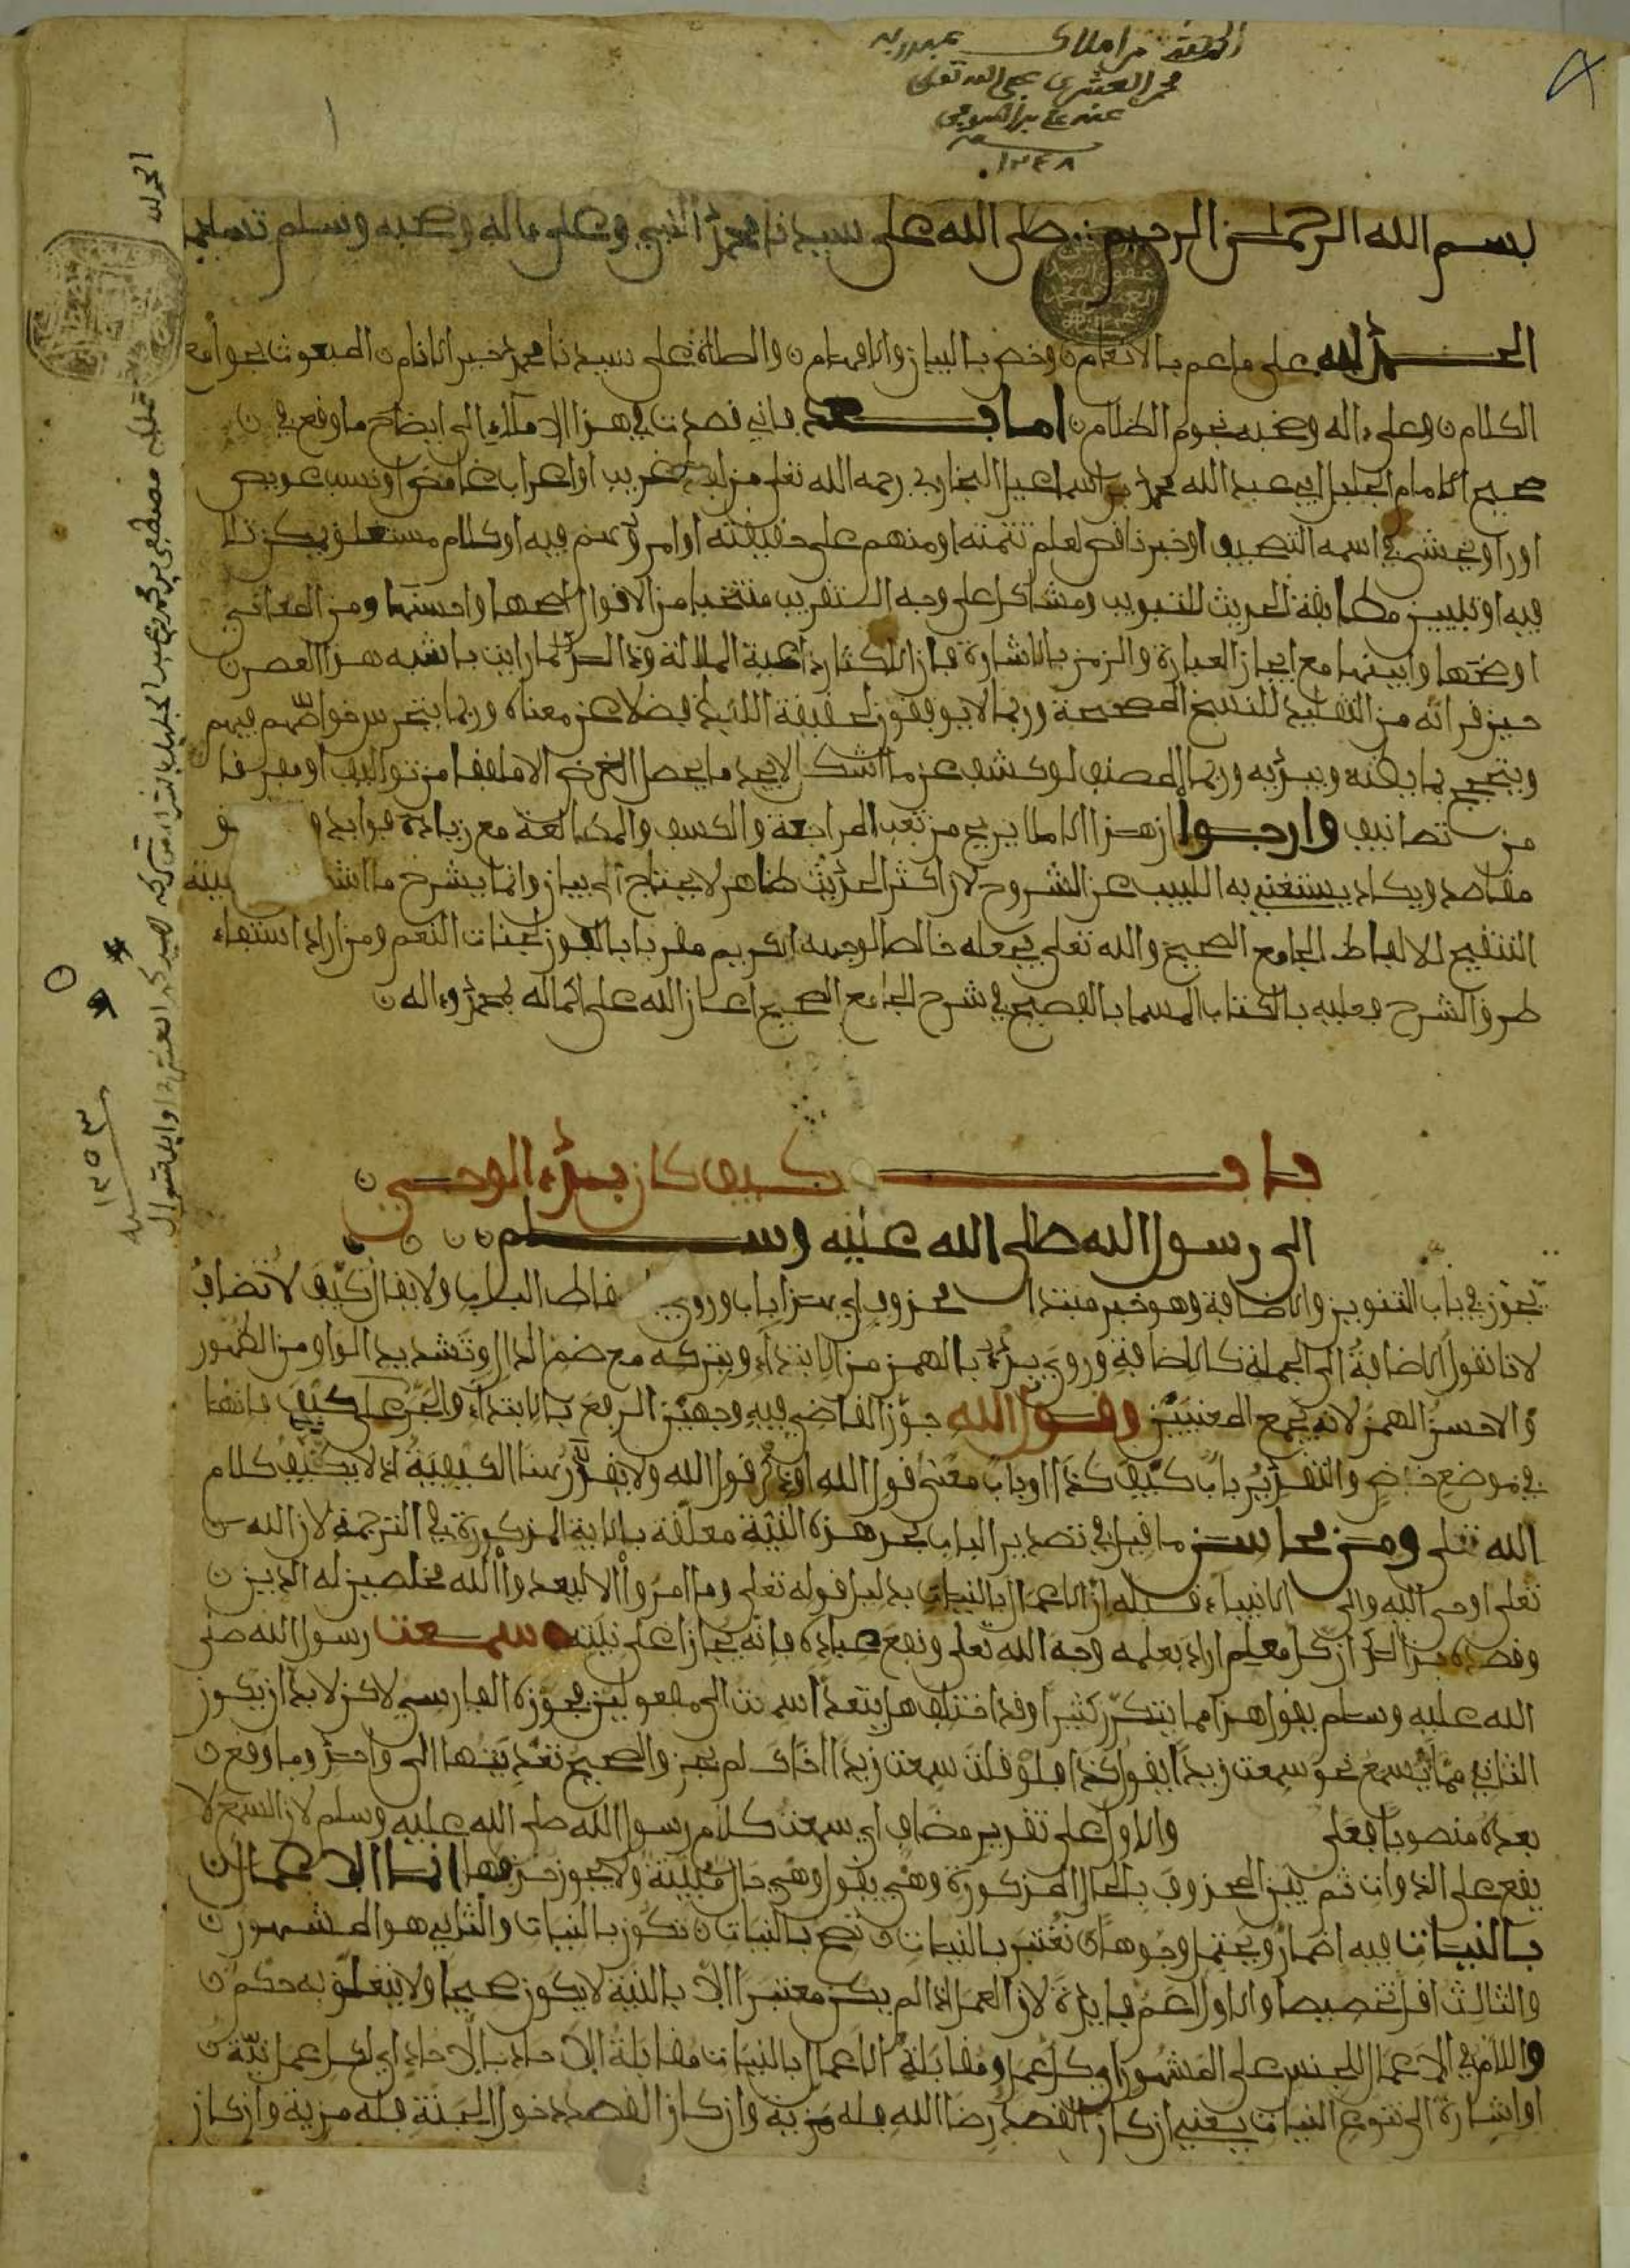 بسم الله الرحمن الرحيم صلى الله على سيدنا محمد النبي وعلى ءاله وصحبه وسلم تسليما
الحمد لله على ما عم بالانعام وخص بالبيان والافهام والصلاة على سيدنا محمد خير الانام المبعوث بجوامع
الكلام وعلى ءاله وصحبه نجوم الظلام اما بعد فاني قصدت في هذا الاملاء الى ايضاح ما وقع في
صحيح الامام الجليل ابي عبد الله محمد بن اسماعيل البخاري رحمه الله تعلى من لفظ غريب او اعراب غامض او نسب عويص
او راو يخشى في اسمه التصحيف او خبر ناقص تعلم تتمته او مبهم علم حقيقته او امر وهم فيه او كلام مستغلق يمكن تلا
فيه او تبيين مطابقة الحديث للتبويب ومشاكل على وجه التقريب منتخبا من الاقوال اصحها واحسنها ومن المعاني
اوضحها وابينها مع ايجاز العبارة والرمز بالاشارة فان الاكثار داعية الملالة وذلك لما رايت ناشية هذا العصر
حين قرائه من التقليد للنسخ المصححة وربما لا يوفقون لحقيقة اللفظ فضلا عن معناه وربما يتخرس خواصهم فيهم
ويتبجح بما يظنه ويبديه وربما المصنف لو كشف عن ما اشكل لا يجد ما يحصل الغرض الا ملفقا من تواليف او مفرقا
من تصانيف وارجوا ان هذا الاملا يريح من تعب المراجعة والكشف والمطالعة مع زيادة فوايد
مقاصد ويكاد يستغني به اللبيب عن الشروح لان اكثر الحديث ظاهر لا يحتاج الى بيان وانما يشرح ما
التنقيح لالفاظ الجامع الصحيح والله تعلى يجعله خالصا لوجهه الكريم مقربا بالفوز لجنات النعم ومن اراد استيفاء
طرق الشرح فعليه بالكتاب المسما بالفصيح في شرح الجامع الصحيح اعان الله على اكماله بمحمد وءاله
باب كيف كان بدء الوحي
الى رسول الله صلى الله عليه وسلم
يجوز في باب التنوين والاضافة وهو خبر مبتدا محذوف اي هذا باب وروي باسقاط الباب ولا يقال كيف لا تضاف
لانا نقول الاضافة الى الجملة كلا اضافة وروي بدء بالهمز من الابتداء وبتركه مع ضم الدال وتشديد الواو من الظهور
والاحسن الهمز لانه يجمع المعنيين وقول الله جوز القاضي فيه وجهين الرفع بالابتداء والجر على كيف فانها
في موضع خفض والتقدير باب كيف كذا او باب معنى قول الله او ذكر قول الله ولا يقدر هنا الكيفية اذ لا يكيف كلام
الله تعلى ومن محاسن ما قيل في تصدير الباب بحديث النية تعلقه بالاية المذكورة في الترجمة لان الله
تعلى اوحى اليه والى الانبياء قبله ان الاعمال بالنيات بدليل قوله تعلى وما امروا الا ليعبدوا الله مخلصين له الدين
وقصده بذلك ان كل معلم اراد بعلمه وجه الله تعلى ونفع عباده فانه يجازا على نيته سمعت رسول الله صلى
الله عليه وسلم يقول هذا مما يتكرر كثيرا وقد اختلف هل يتعدا سمعت الى مفعولين فجوزه الفارسي لاكن لا بد ان يكون
الثاني مما يسمع نحو سمعت زيدا يقول كذا فلو قلت سمعت زيدا اخاك لم يجز والصحيح تعديتها الى واحد وما وقع
بعده منصوبا فعلى والاول على تقدير مضاف اي سمعت كلام رسول الله صلى الله عليه وسلم لان السمع لا
يقع على الذوات ثم بين المحذوف بالحال المذكورة وهي يقول وهي حال مبينة ولا يجوز حذفها انما الاعمال
بالنيات فيه اضمار ويحتمل وجوها تعتبر بالنيات تصح بالنيات تكون بالنيات والثاني هو المشهور
والثالث اقل تخصيصا والاول اعم فايدة لان العمل اذا لم يكن معتبرا الا بالنية لا يكون صحيحا ولا يتعلق به حكم
واللام في الاعمال للجنس على المشهور اي كل عمل ومقابلة الاعمال بالنيات مقابلة الاحاد بالاحاد اي لكل عمل نية
او اشارة الى تنوع النيات يعني ان كان القصد رضا الله فله مزية وان كان القصد دخول الجنة فله مزية وان كان
١٢٤٨
١٢٥٣